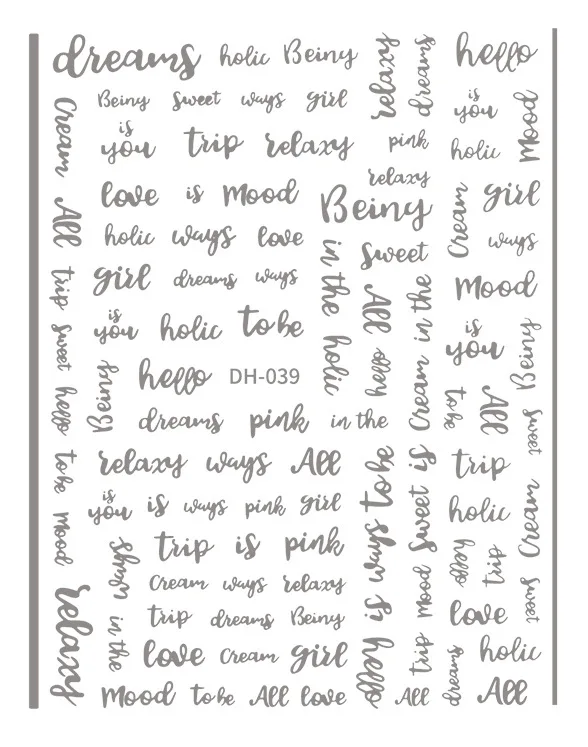 dreams holic Beiny relaxy dreams hello
Cream Beiny Sweet ways girl is you Mood
is you trip relaxy pink holic
relaxy
All love is Mood Beiny Cream girl
holic ways love in the holic Sweet ways
trip girl dreams ways All Cream in the Mood
sweet is you holic to be hello is you Beiny
hello Beiny hello DH-039 to be All sweet
dreams pink in the
to be relaxy ways All hello is ways to be Sweet is trip
Mood is you is ways pink girl Mood holic Cream
ways trip is pink hello trip
Cream ways relaxy sweet
relaxy in the trip dreams Beiny trip love
love Cream girl dreams holic
Mood to be All love All All